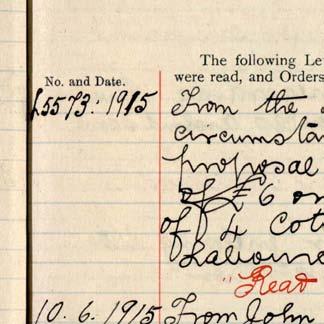 The following Le
were read, and Orders
No. and Date.
L5573: 1915
From the
circumsta
proposal
of £6 on
of 4 Cot
Laboure
"Read
10.6.1915 From John